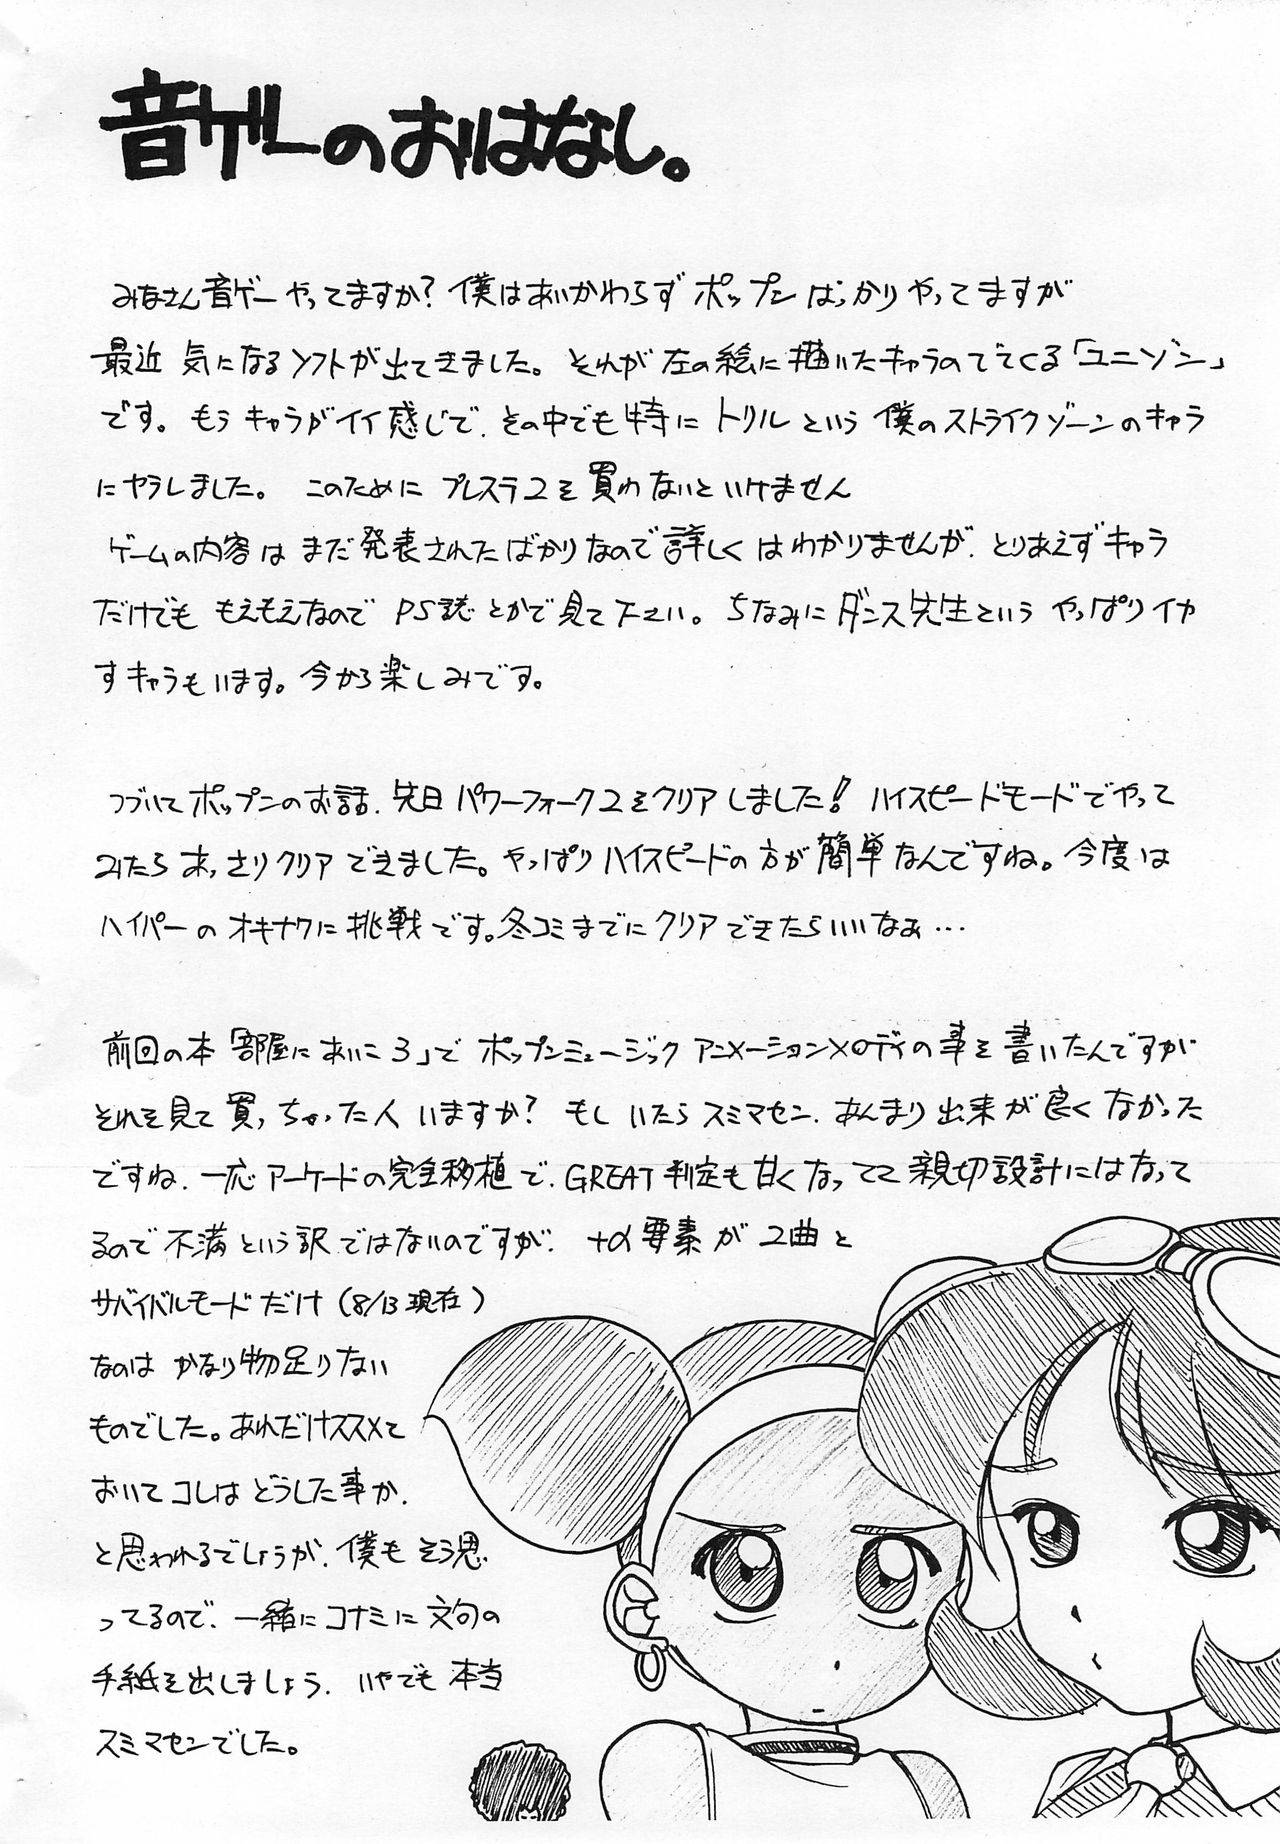 音ゲーのおはなし。
みなさん音ゲーやってますか？僕はあいかわらずポップンばっかりやってますが
最近 気になるソフトが出てきました。それが左の絵に描いたキャラのでてくる「ユニゾン」
です。もうキャラがイイ感じで、その中でも特にトリルという僕のストライクゾーンのキャラ
にヤラレました。このためにプレステ2を買わないといけません
ゲームの内容はまだ発表されたばかりなので詳しくはわかりませんが、とりあえずキャラ
だけでももえもえなのでPS誌とかで見て下さい。ちなみにダンス先生というやっぱりイカ
すキャラもいます。今から楽しみです。
つづいてポップンのお話、先日パワーフォーク2をクリアしました！ハイスピードモードでやって
みたらあっさりクリアできました。やっぱりハイスピードの方が簡単なんですね。今度は
ハイパーのオキナワに挑戦です。冬コミまでにクリアできたらいいなぁ…
前回の本「部屋にあいこ3」でポップンミュージックアニメーションメロディの事を書いたんですが
それを見て買っちゃった人いますか？もしいたらスミマセン、あんまり出来が良くなかった
ですね、一応アーケードの完全移植で、GREAT判定も甘くなってて親切設計にはなって
るので不満という訳ではないのですが、+α要素が2曲と
サバイバルモードだけ（8/13現在）
なのはかなり物足りない
ものでした。あれだけススメて
おいてコレはどうした事か、
と思われるでしょうが、僕もそう思
ってるので、一緒にコナミに文句の
手紙を出しましょう、いやでも本当
スミマセンでした。